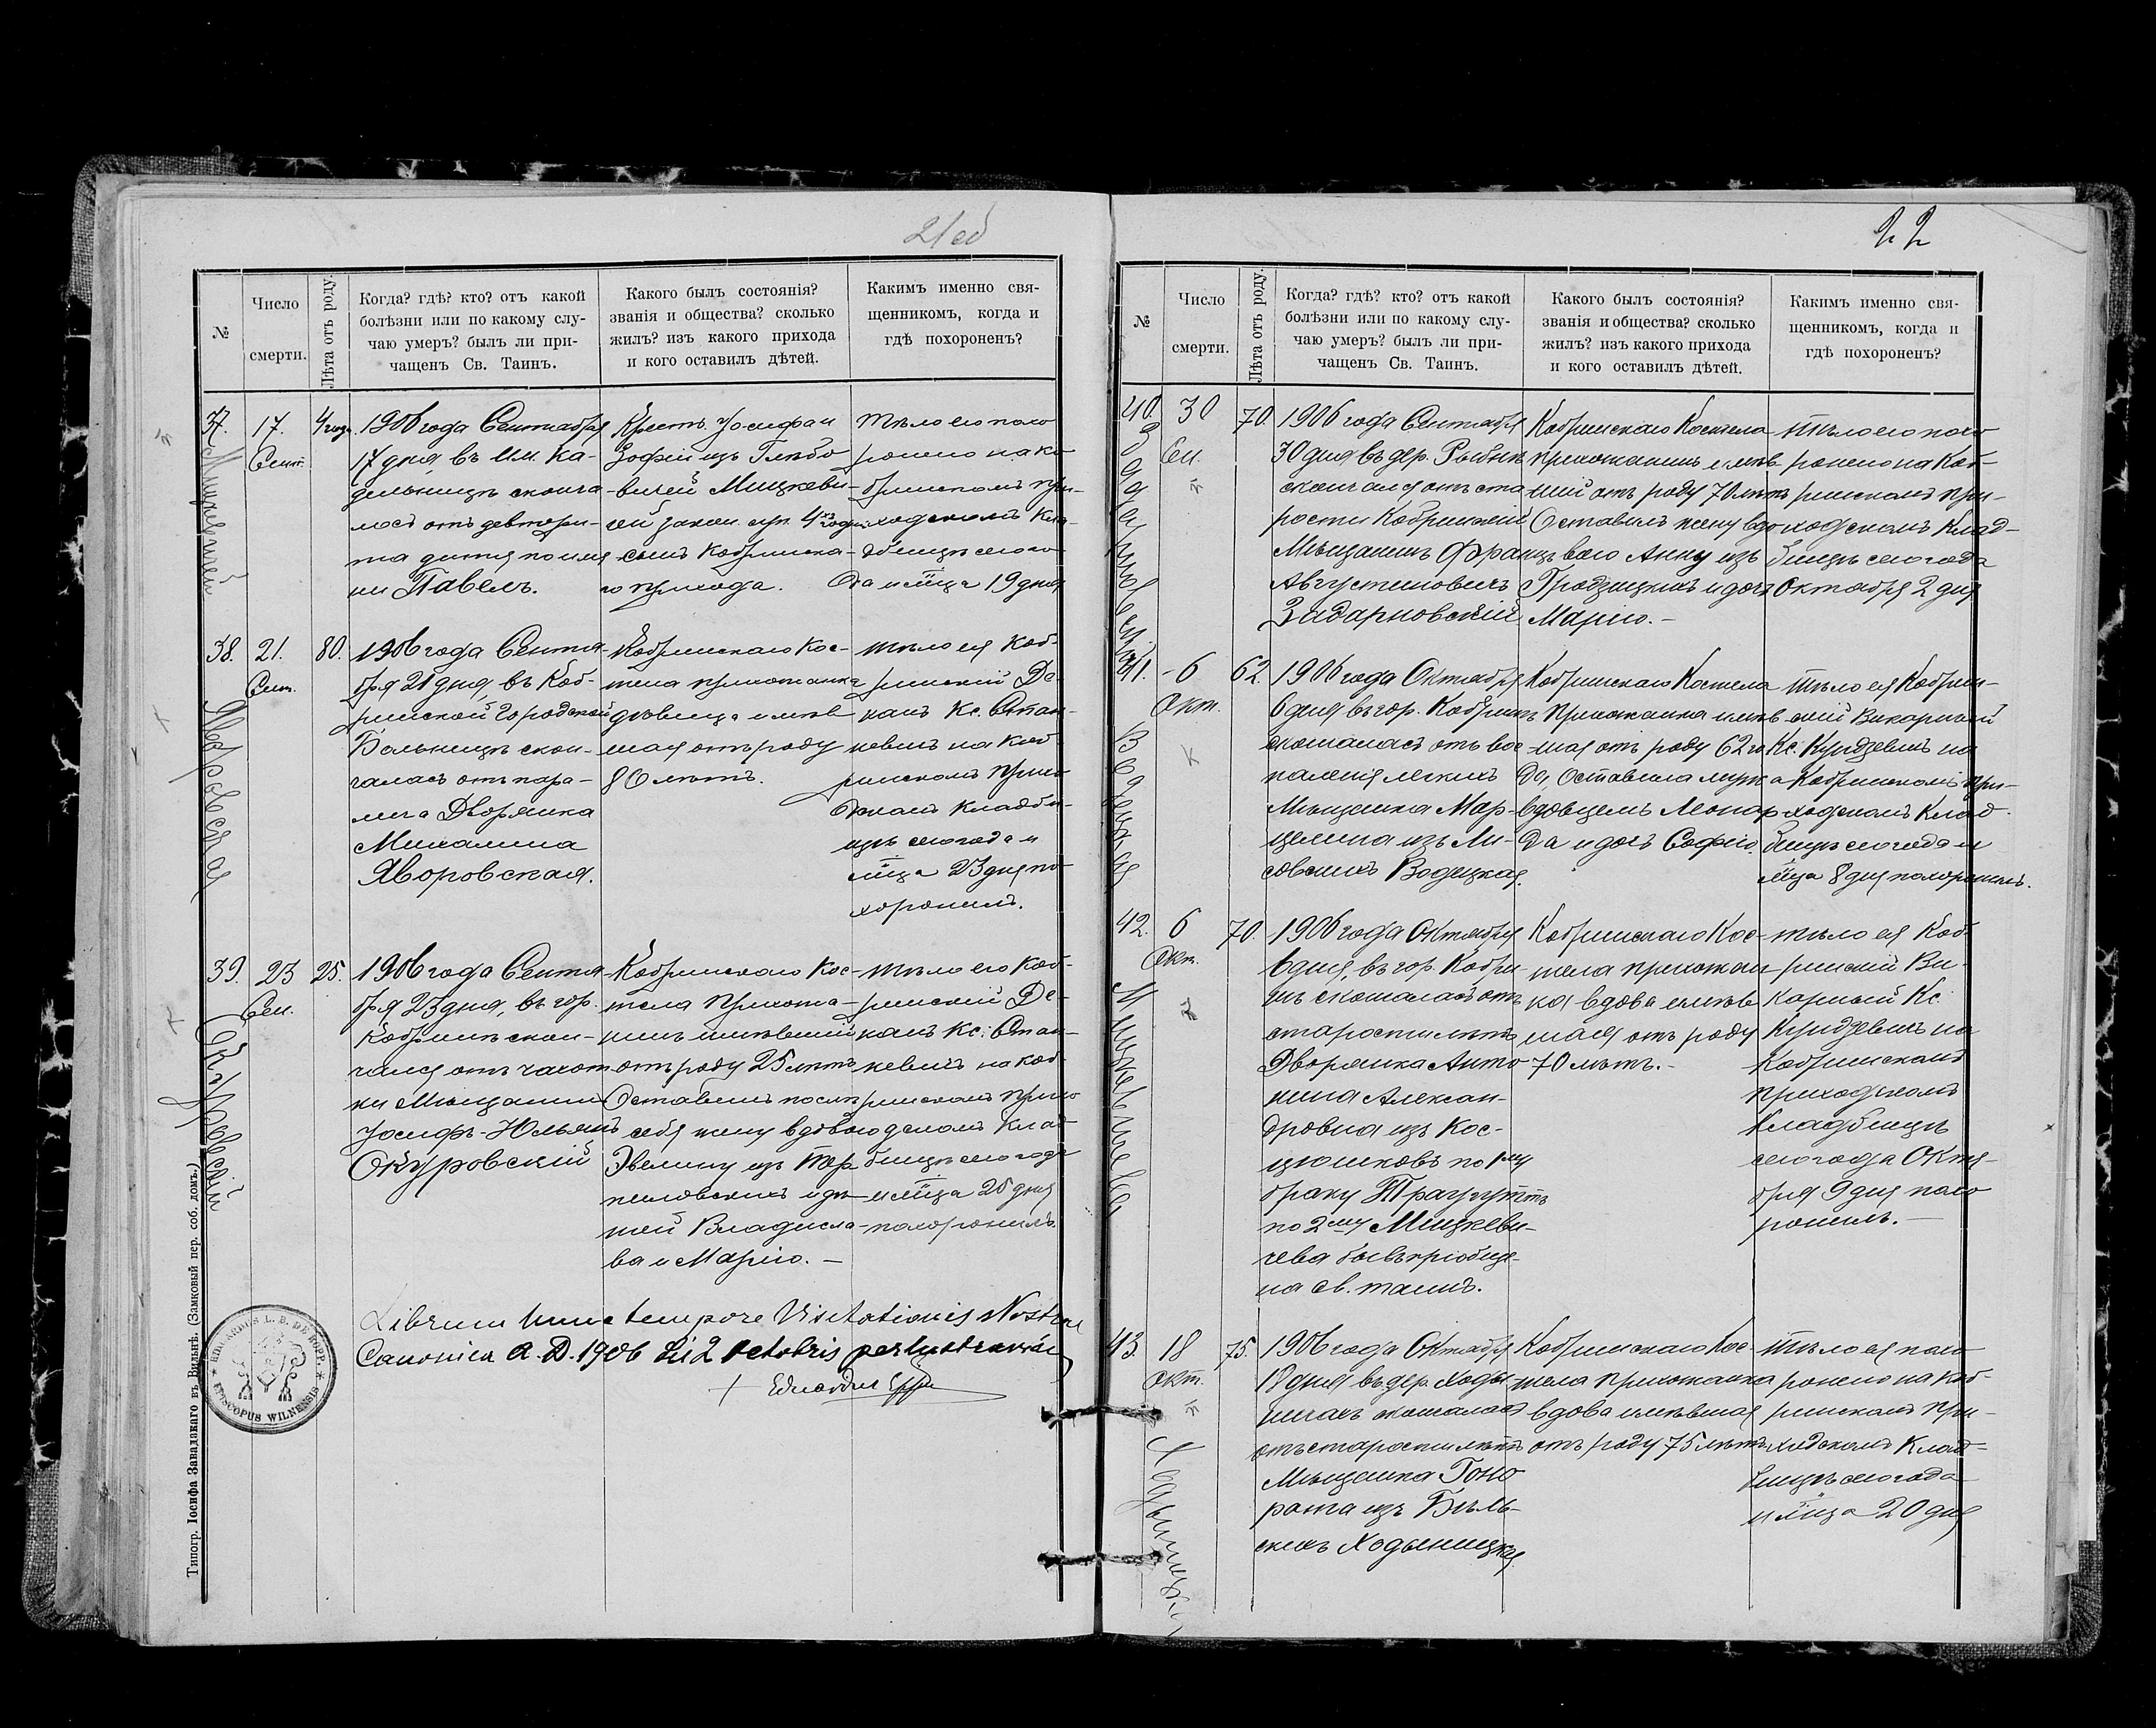 21 об
№
Число
смерти.
Лѣта отъ роду.
Когда? гдѣ? кто? отъ какой
болѣзни или по какому слу-
чаю умеръ? былъ ли при-
чащенъ Св. Таинъ.
Какого былъ состоянія?
званія и общества? сколько
жилъ? изъ какого прихода
и кого оставилъ дѣтей.
Какимъ именно свя-
щенникомъ, когда и
гдѣ похороненъ?
37.
17.
Сент.
4 года
Мицкевичей
1906 года Сентября
17 дня, въ им. Ка-
дельницѣ сконча
лось отъ девтери-
та дитя по име
ни Павелъ.
Крест. Іосифа и
Зофіи изъ Глѣбо
вичей Мицкеви-
чей закон. супр. 4хъ годи
сынъ Кобринска-
го прихода.
тѣло его похо
ронено на ко
бринскомъ при-
ходскомъ Кла-
дбищѣ сего го
да и м͞ца 19 дня
38.
21.
Сент.
80.
Яворовская
1906 года Сентя-
бря 21 дня, въ Коб-
ринской городской
Больницѣ скон-
чалась отъ пара-
лича Дворянка
Михалина
Яворовская.
Кобринскаго Кос-
тела прихожанка
дѣвица имѣв
шая отъ роду
80 лѣтъ.
тѣло ея Коб-
ринскій Де-
канъ Кс. Стан-
кевичъ на Коб-
ринскомъ прихо
дскомъ кладби-
щѣ сего года и
м͞ца 23 дня по-
хоронилъ.
39.
23
Сен.
25.
Окуровскій
1906 года Сентя-
бря 23 дня, въ гор.
Кобринѣ скон-
чался отъ чахот
ки Мѣщанин
Іосифъ-Юльянъ
Окуровскій
Кобринскаго Кос-
тела прихожа-
нинъ имѣвшій
отъ роду 25 лѣтъ
Оставилъ послѣ
себя жену вдовою
Эвелину изъ
и дѣ-
тей Владисла-
ва и Марію. —
тѣло его Коб-
ринскій Де-
канъ Кс. Стан-
кевичъ на Коб-
ринскомъ прихо
дскомъ Клад-
бищѣ сего года
и м͞ца 25 дня
похоронилъ.
Librum hunc tempore Visitationis Nostrae
Canonicae A. D. 1906 di 2 Octobris perlustravi
+ Eduardus Epps
EDUARDUS L. B. DE ROPP.
EPISCOPUS WILNENSIS
Типогр. Іосифа Завадзкаго въ Вильнѣ. (Замковый пер. соб. домъ.)
22
№
Число
смерти.
Лѣта отъ роду.
Когда? гдѣ? кто? отъ какой
болѣзни или по какому слу-
чаю умеръ? былъ ли при-
чащенъ Св. Таинъ.
Какого былъ состоянія?
званія и общества? сколько
жилъ? изъ какого прихода
и кого оставилъ дѣтей.
Какимъ именно свя-
щенникомъ, когда и
гдѣ похороненъ?
40.
30
Сен.
70.
1906 года Сентября
30 дня въ дер. Рыбнѣ
скончался отъ ста
рости Кобринскій
Мѣщанинъ Францъ
Августиновичъ
Задарновскій
Кобринскаго Костела
прихожанинъ имѣв
шій отъ роду 70 лѣтъ
Оставилъ жену вдо
вою Анну изъ
Гродзицкихъ и дочь
Марію. —
тѣло его похо
ронено на Коб-
ринскомъ при-
ходскомъ Клад-
бищѣ сего года
Октября 2 дня
41.
6
Окт.
62.
Водецкая
1906 года Октября
6 дня въ гор. Кобринѣ
скончалась отъ вос
паленія легкихъ
Мѣщанка Мар-
целина изъ Ли-
совскихъ Водецкая.
Кобринскаго Костела
прихожанка имѣв
шая отъ роду 62 го
да, Оставила мужа
вдовцемъ Леонар
да и дочь Софію.
тѣло ея Кобрин-
скій Викарный
Кс. Кундзевичъ на
Кобринскомъ при-
ходскомъ Клад-
бищѣ сего года и
м͞ца 8 дня похоронилъ.
42.
6
Окт.
70.
Мицкевичева
1906 года Октября
6 дня, въ гор. Кобри-
нѣ скончалась отъ
старости лѣтъ
Дворянка Анто
нина Алексан-
дровна изъ Кос-
цюшковъ по 1му
браку Траугуттъ
по 2му Мицкеви-
чева бывъ пріобще-
на Св. таинъ.
Кобринскаго Кос-
тела прихожан
ка вдова имѣв
шая отъ роду
70 лѣтъ. -
тѣло ея Коб-
ринскій Ви-
карный Кс.
Кундзевичъ на
Кобринскомъ
приходскомъ
Кладбищѣ
сего года Октя-
бря 9 дня похо
ронилъ. —
43.
18
Окт.
75.
1906 года Октября
18 дня въ дер. Ходы
ничахъ скончалась
отъ старости лѣтъ
Мѣщанка Гоно
рата изъ Бѣль-
скихъ Ходыницкая
Кобринскаго Кос
тела прихожанка
вдова имѣвшая
отъ роду 75 лѣтъ.
тѣло ея похо
ронено на Коб-
ринскомъ при-
ходскомъ Клад-
бищѣ сего года
и м͞ца 20 дня